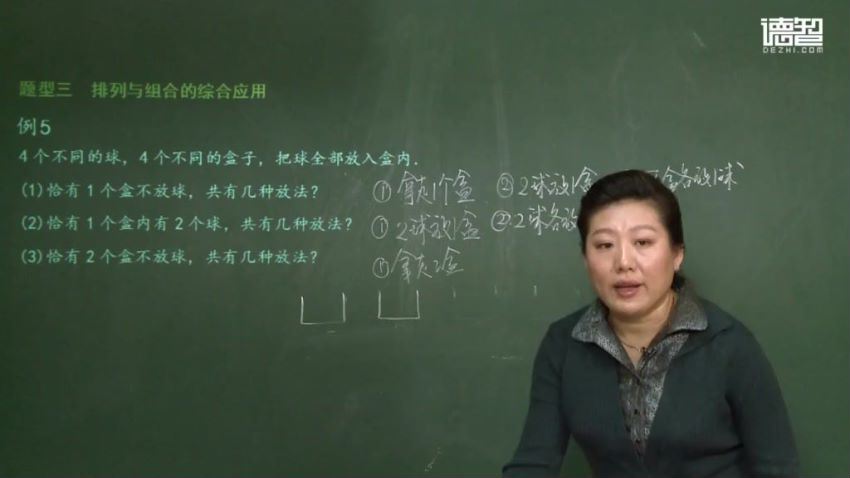 德智
DEZHI.COM
题型三 排列与组合的综合应用
例5
4个不同的球，4个不同的盒子，把球全部放入盒内.
(1)恰有1个盒不放球，共有几种放法？
① 拿走1个盒 ② 2球放1盒 盒各放1球
(2)恰有1个盒内有2个球，共有几种放法？
① 2球放1盒 ② 2球各放
(3)恰有2个盒不放球，共有几种放法？
① 拿走2盒